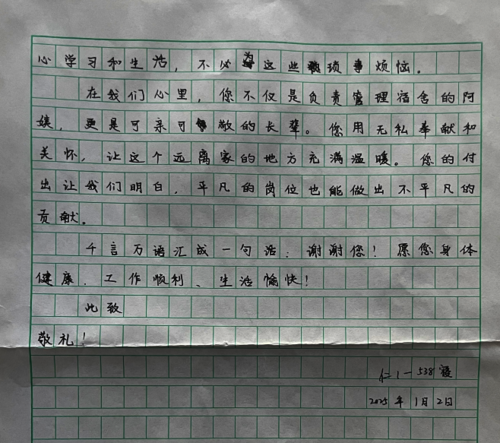 心学习和生活，不必为这些琐事烦恼。
在我们心里，您不仅是负责管理宿舍的阿
姨，更是可亲可敬的长辈。您用无私奉献和
关怀，让这个远离家的地方充满温暖。您的付
出让我们明白，平凡的岗位也能做出不平凡的
贡献。
千言万语汇成一句话：谢谢您！愿您身体
健康、工作顺利、生活愉快！
此致
敬礼！
仁1-538寝
2025年1月2日